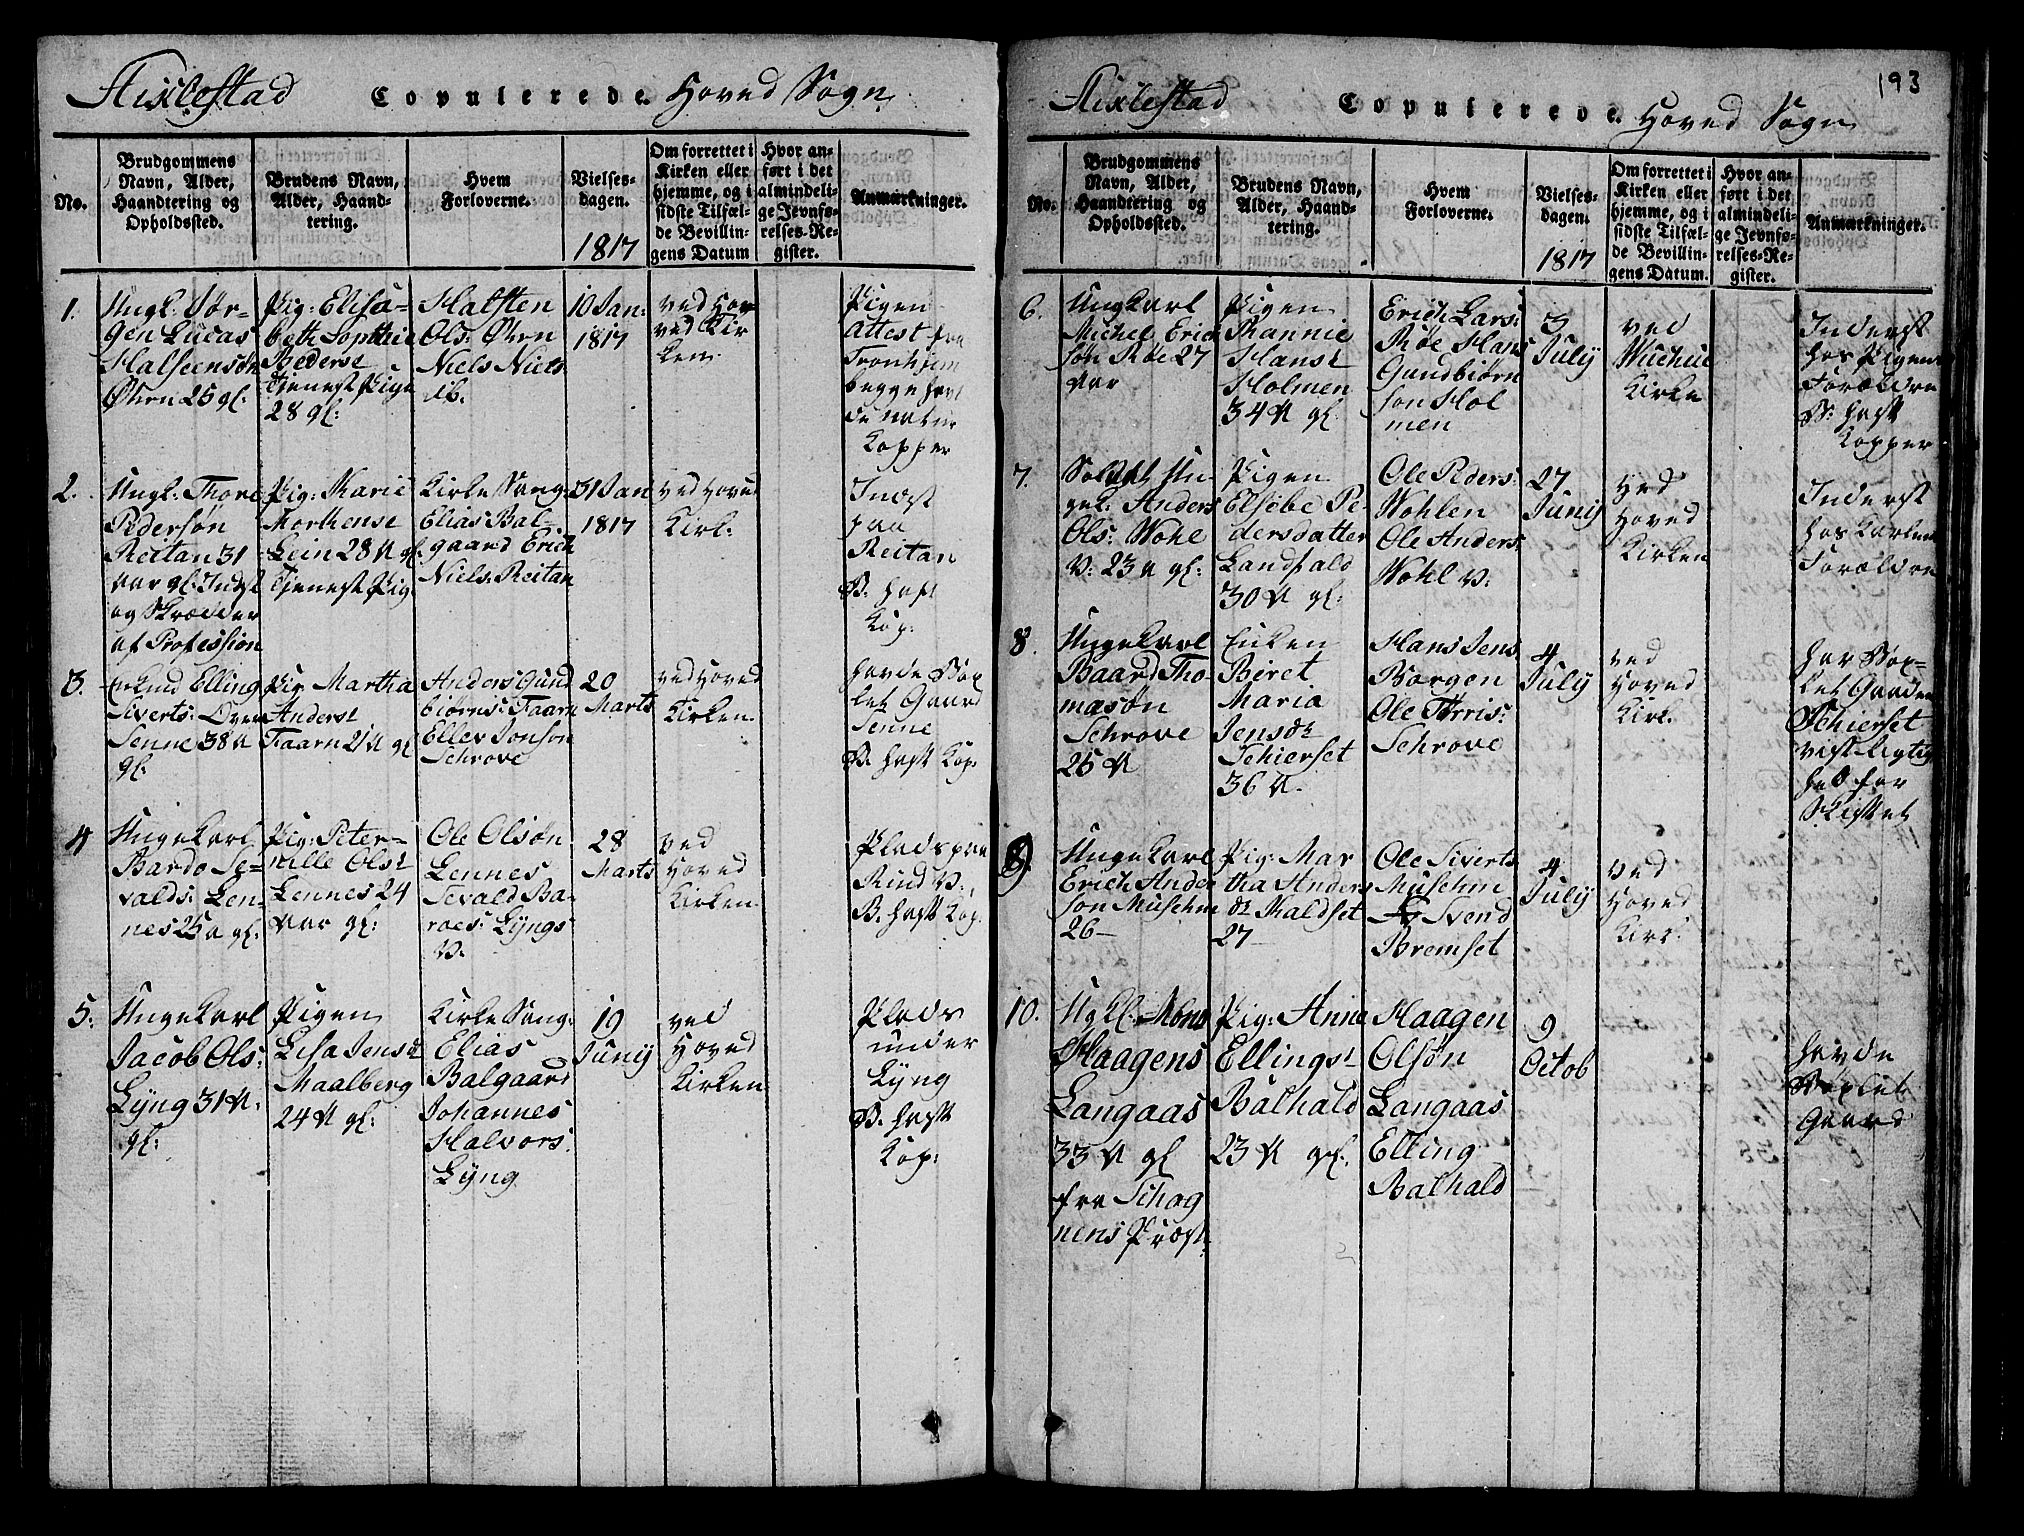 Stixlestad Copulerede Hoved Sogn
No.
Brudgommens
Navn, Alder,
Haandtering og
Opholdssted.
Brudens Navn,
Alder, Haand-
tering.
Hvem
Forloverne.
Vielses-
dagen.
1817
Om forrettet i
Kirken eller
hjemme, og i
sidste Tilfæl-
de Bevillin-
gens Datum
Hvor an-
ført i det
almindeli-
ge Jevnfø-
relses-Re-
gister.
Anmærkninger.
1.
Ungk: Jør-
gen Lucas
Halsteensøn
Øhren 25 gl.
Pig: Elisa-
beth Sophie
Pederst
Tjenest Pige
28 gl:
Halsten
Ols: Øhren
Niels Niels
ib.
10 Jan:
1817
ved Hov
ved Kir
ken
Pigen
Attest fra
Tronhjem
begge hav
de natur
Kopper
2.
Ungk: Thore
Pedersøn
Reitan 31
aar gl. Indst
og Skrædder
af Profession
Pig: Marie
Morthenst
Lein 28 A gl.
Tjenest Pig
Kirke Sang:
Elias Bal-
gaard Erich
Niels: Reitan
31 Jan
1817
ved Hoved
Kirk:
Indst
paa
Reitan
B: haft
Kop:
3.
Enkmd Elling
Siverts: Over
Senne 38 A
gl.
Pig Martha
Anderst
Faarn 21 A gl
Anders Gund
biørns: Faarn
Eller Jonsøn
Schrove
20
Marts
ved Hoved
Kirken
havde Bøx
let Gaard
Senne
B. haft Kop:
4
Ungekarl
Bardo Se-
valds: Len-
nes 25 a gl.
Pig: Peter-
nille Olst
Lennes 24
aar gl:
Ole Olsøn
Lennes
Sevald Ba-
roes: Lyngs
V:
28
Marts
ved
Hoved
Kirken
Plads paa
Rind V:,
B. haft Kop:
5:
Ungekarl
Jacob Ols:
Lyng 31 A.
gl:
Pigen
Lisa Jensdt
Maalberg
24 A gl:
Kirke Sang:
Elias
Balgaard
Johannes
Halvors:
Lyng
19
Junij
ved
Hoved
Kirken
Plads
under
Lyng
B. haft
Kop:
193
Stixlestad Copulerede Hoved Sogn
No.
Brudgommens
Navn, Alder,
Haandtering og
Opholdssted.
Brudens Navn,
Alder, Haand-
tering.
Hvem
Forloverne.
Vielses-
dagen.
1817
Om forrettet i
Kirken eller
hjemme, og i
sidste Tilfæl-
de Bevillin-
gens Datum.
Hvor an-
ført i det
almindeli-
ge Jevnfø-
relses-Re-
gister.
Anmærkninger.
6.
Ungkarl
Michel Erich
søn Røe 27
aar
Pigen
Rannie
Hanst
Holmen
34 A gl.
Erich Lars:
Røe Hans
Gundbiørn
søn Hol
men
3
July
ved
Kirke
Inderst
hos Pigens
Forældre
B: haft
Kopper
7.
Soldat Un-
gek: Anders
Ols: Wohl
V: 23 A gl:
Pigen
Elsebe Pe-
dersdatter
Landfald
30 A gl:
Ole Peders:
Wohlen
Ole Anders:
Wohl V:
27
Junij
ved
Hoved
Kirken
Inderst
hos Karlens
Forældre
8.
Ungekarl
Baard Tho-
masøn
Schrove
25 A
Enken
Beret
Maria
Jensdt
Schierset
36 A.
Hans Jens
Borgen
Ole Thorris:
Schrove
4
July
ved
Hoved
Kirk.
har Bøx-
let Gaarden
Schierset
vist ligtig
hed for
Skiftet
9
Ungekarl
Erich Ander
søn Musehm
26 —
Pig: Mar
tha Anders
dt Kaldset
27 —
Ole Siverts
Musehm
Svend
Bremset
4
July
ved
Hoved
Kirk:
10.
Ugkl. Mons
Haagens
Langaas
33 A gl
fra Schog
nens Præst:
Pig: Anne
Ellingst
Balhald
23 A gl:
Haagen
Olsøn
Langaas
Elling
Balhald
9
Octob
havde
Bøxlet
Gaard